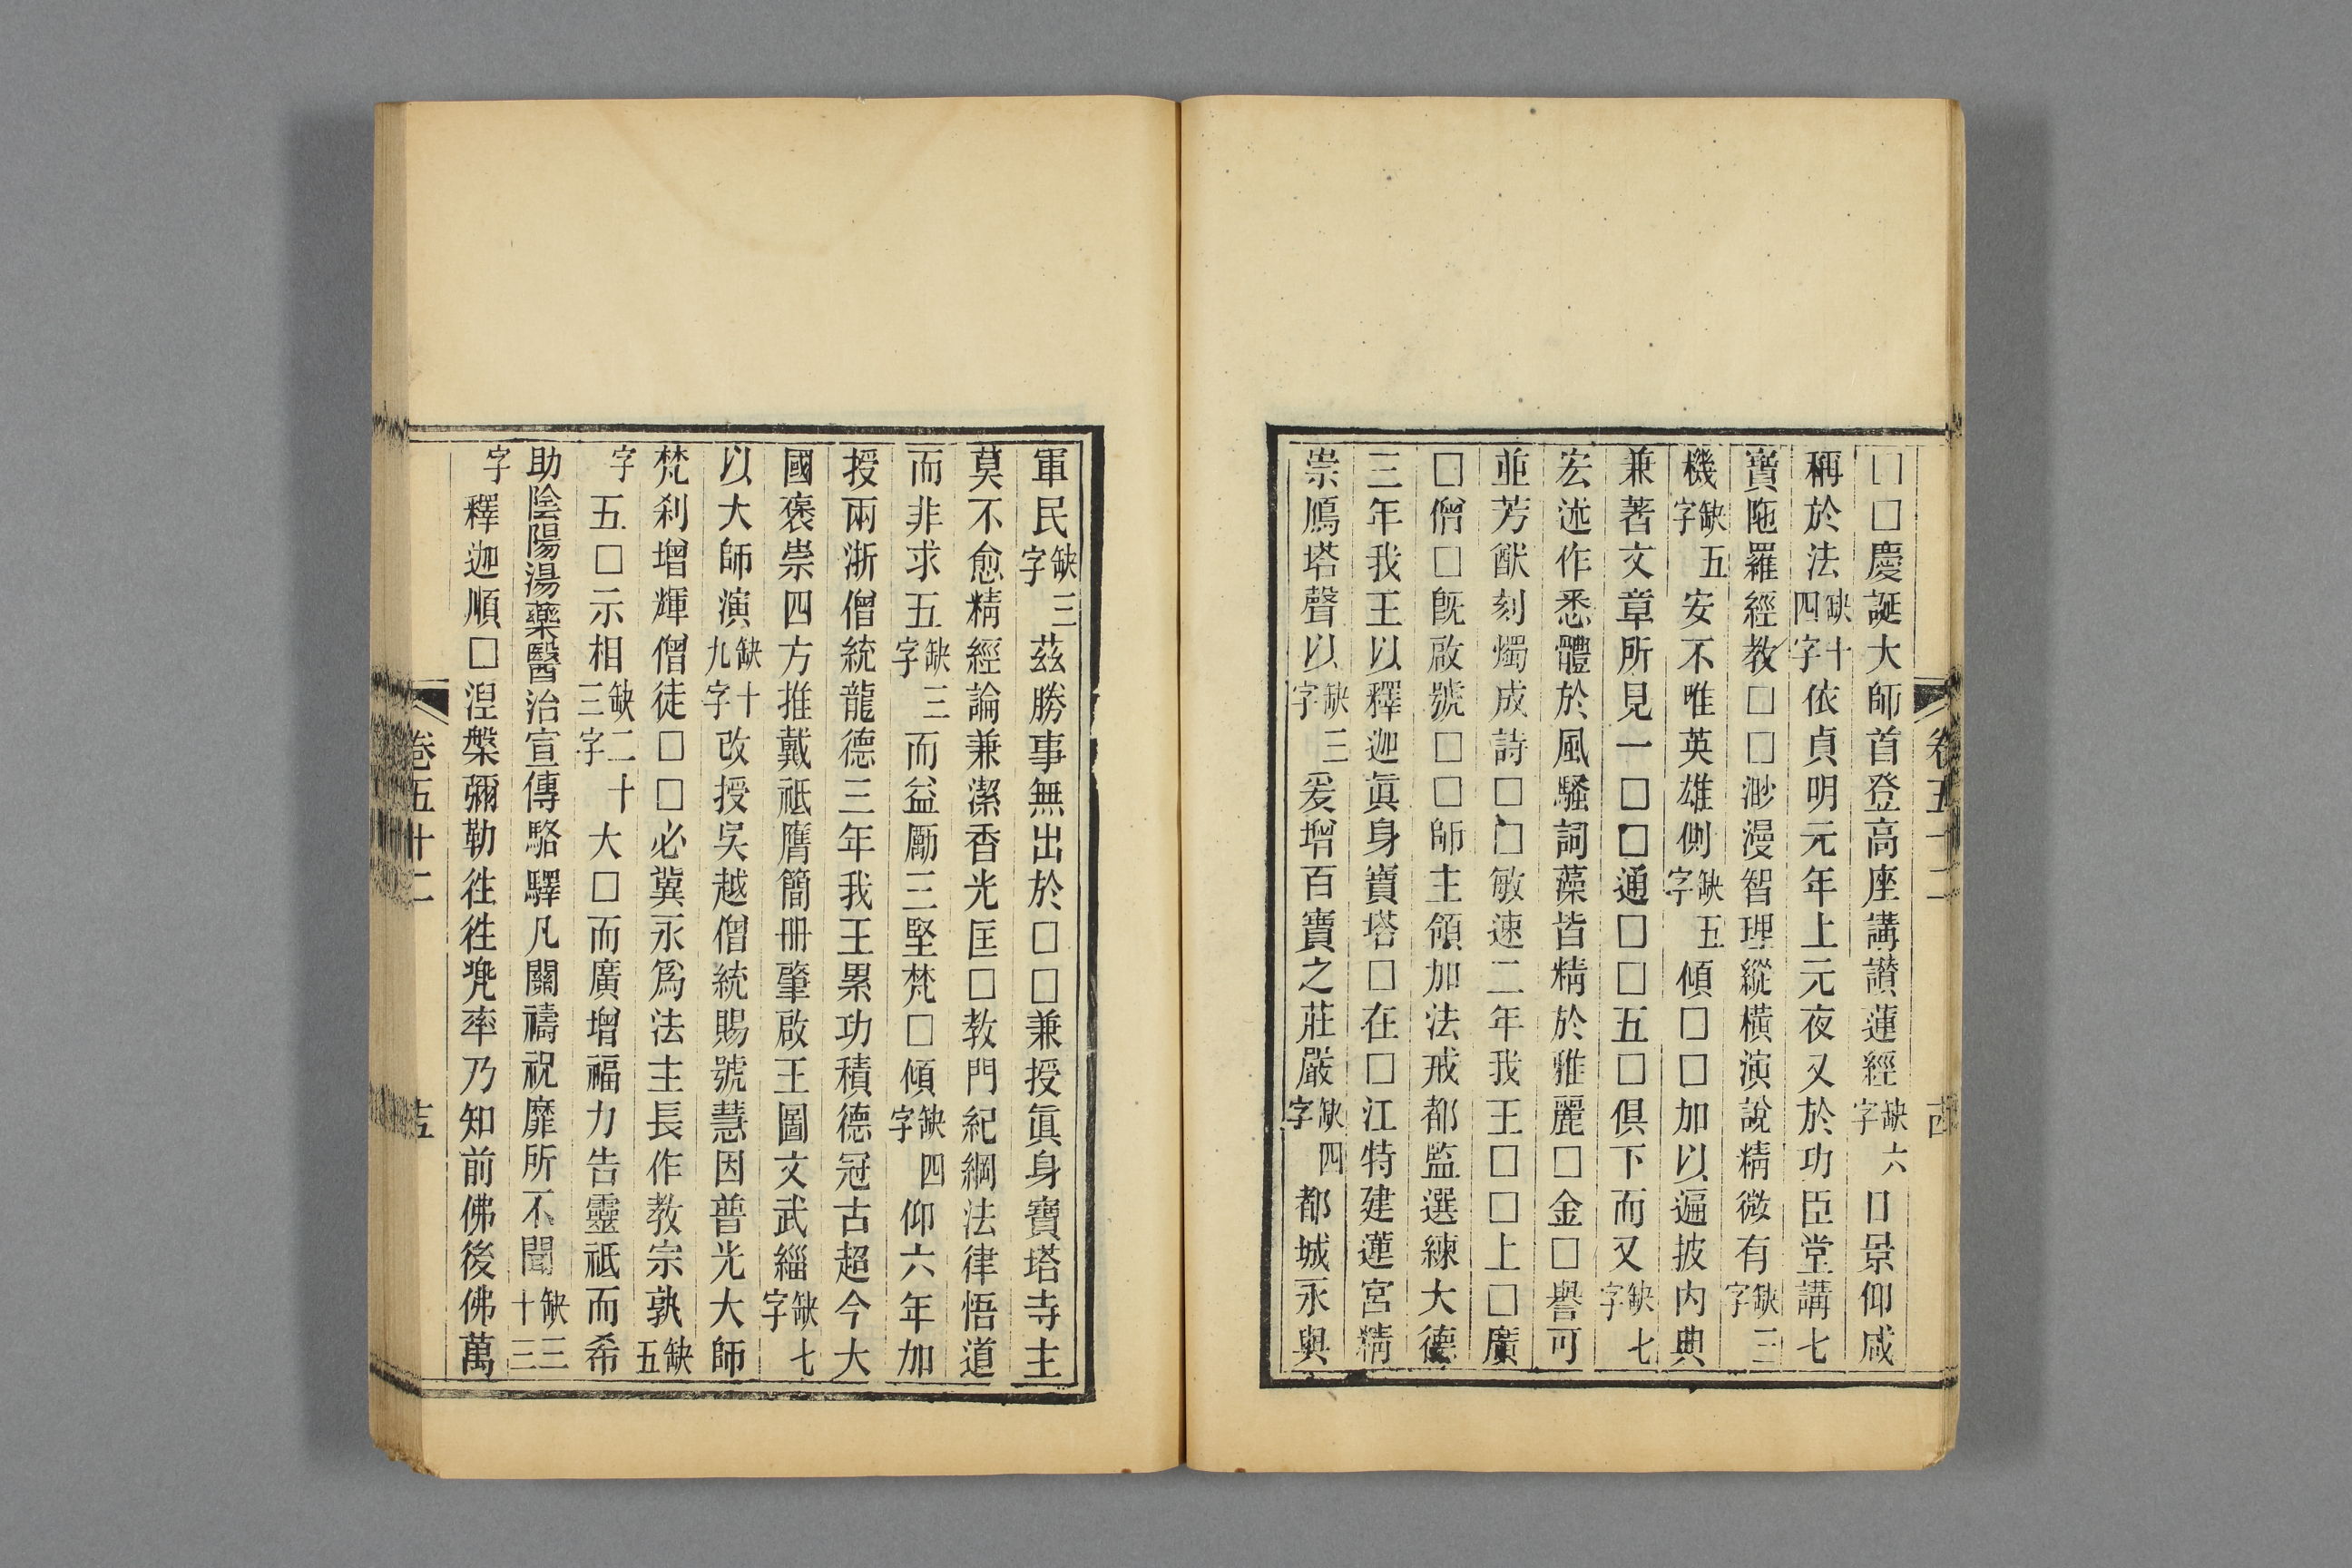 □□慶誕大師首登高座講讚蓮經缺六字日景仰咸
稱於法缺十四字依貞明元年上元夜又於功臣堂講七
寶陁羅經教□□渺漫智理縱橫演說精微有缺三字
機缺五字安不唯英雄側缺五字傾□□加以遍披内典
兼著文章所見一□□通□□五□俱下而又缺七字
宏述作悉體於風騷詞藻皆精於雅麗□金□譽可
並芳猷刻燭成詩□□敏速二年我王□□上□廣
□僧□旣啟號□□師主領加法戒都監選練大德
三年我王以釋迦眞身寶塔□在□江特建蓮宮精
崇鴈塔聲以缺三字爰增百寶之莊嚴缺四字都城永與
卷五十二
古
軍民缺三字茲勝事無出於□□兼授眞身寶塔寺主
莫不愈精經論兼潔香光匡□教門紀綱法律悟道
而非求五缺三字而益勵三堅梵□傾缺四字仰六年加
授兩浙僧統龍德三年我王累功積德冠古超今大
國褒崇四方推戴祗膺簡冊肇啟王圖文武緇缺七字
以大師演缺十九字改授吳越僧統賜號慧因普光大師
梵刹增輝僧徒□□必冀永爲法主長作教宗孰缺五
字五□示相缺二十三字大□而廣增福力告靈祗而希
助陰陽湯藥醫治宣傳駱驛凡關禱祝靡所不聞缺三十三
字釋迦順□涅槃彌勒徃徃兠率乃知前佛後佛萬
卷五十二